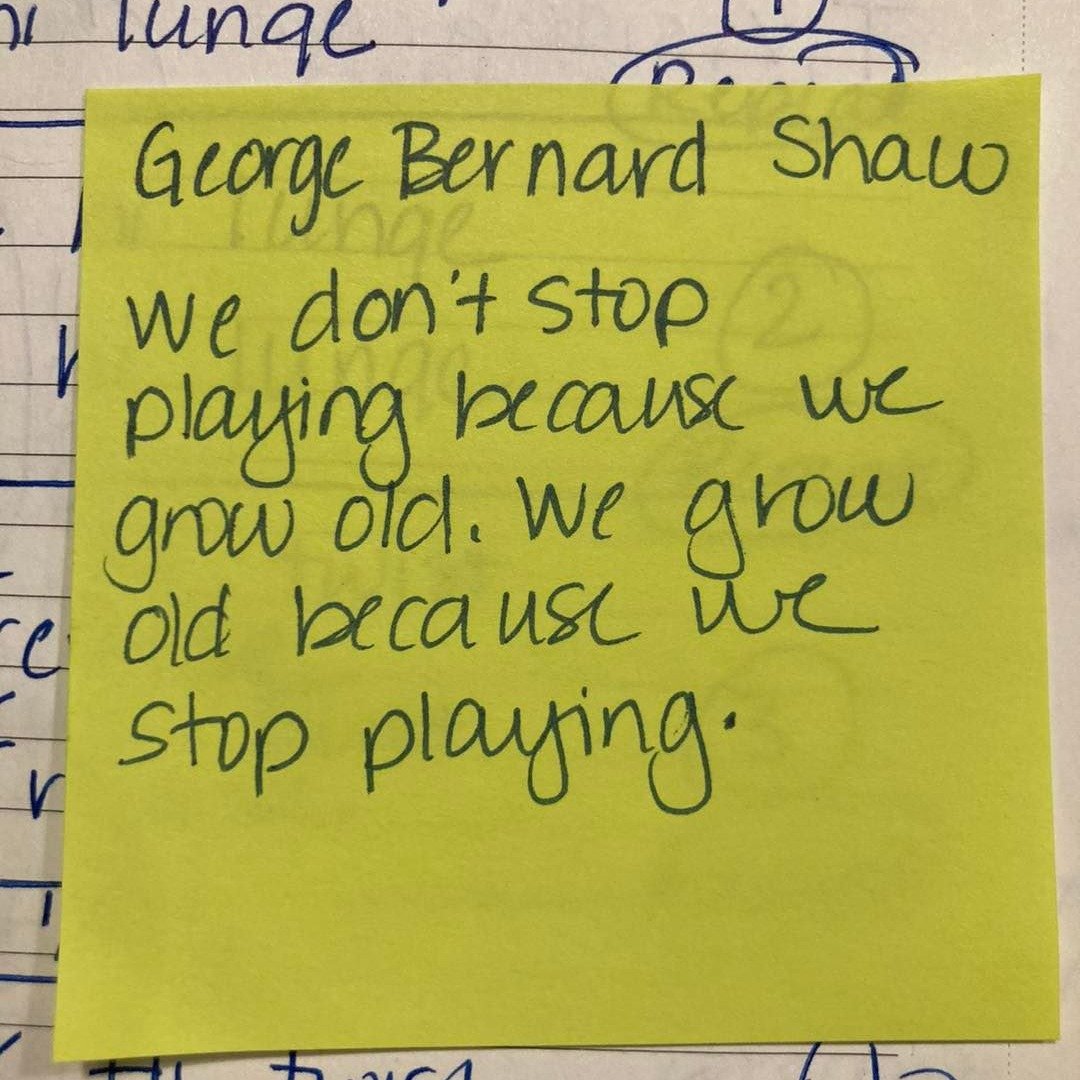 lunge
George Bernard Shaw
lunge
We don't stop
2
playing because we
grow old. We grow
old because we
stop playing.